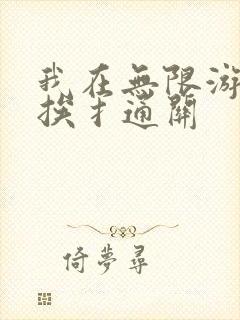 我在無限游
挨扌通關
倚夢尋